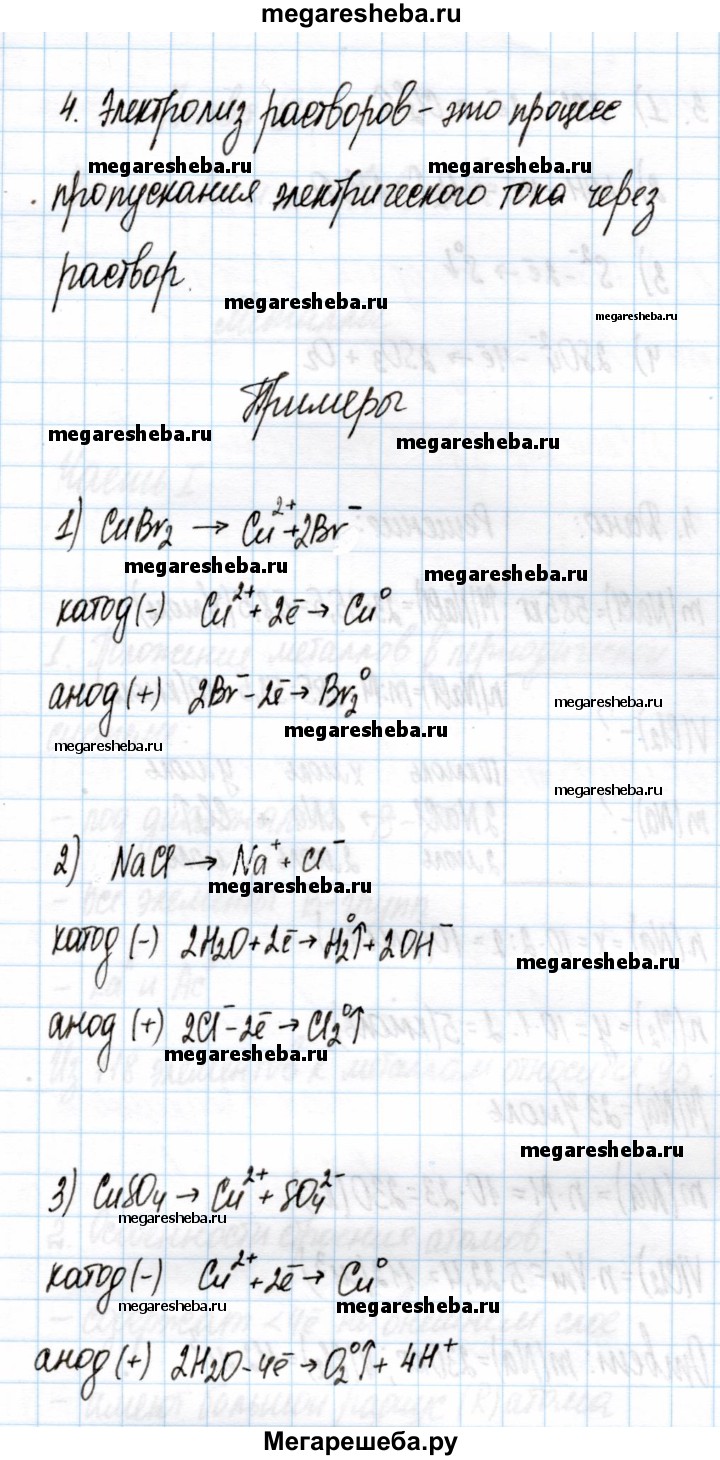 megaresheba.ru
4. Электролиз растворов - это процесс
megaresheba.ru megaresheba.ru
пропускания электрического тока через
раствор.
megaresheba.ru megaresheba.ru
Примеры
megaresheba.ru megaresheba.ru
1) CuBr₂ → Cu²⁺+2Br⁻
megaresheba.ru megaresheba.ru
катод (-) Cu²⁺+2ē → Cu⁰
анод (+) 2Br⁻-2ē → Br₂⁰
megaresheba.ru megaresheba.ru
megaresheba.ru
megaresheba.ru
2) NaCl → Na⁺+Cl⁻
megaresheba.ru
катод (-) 2H₂O+2ē → H₂⁰↑+2OH⁻
megaresheba.ru
анод (+) 2Cl⁻-2ē → Cl₂⁰↑
megaresheba.ru
megaresheba.ru
3) CuSO₄ → Cu²⁺+SO₄²⁻
megaresheba.ru
катод (-) Cu²⁺+2ē → Cu⁰
megaresheba.ru megaresheba.ru
анод (+) 2H₂O-4ē → O₂⁰↑+4H⁺
Мегарешеба.ру